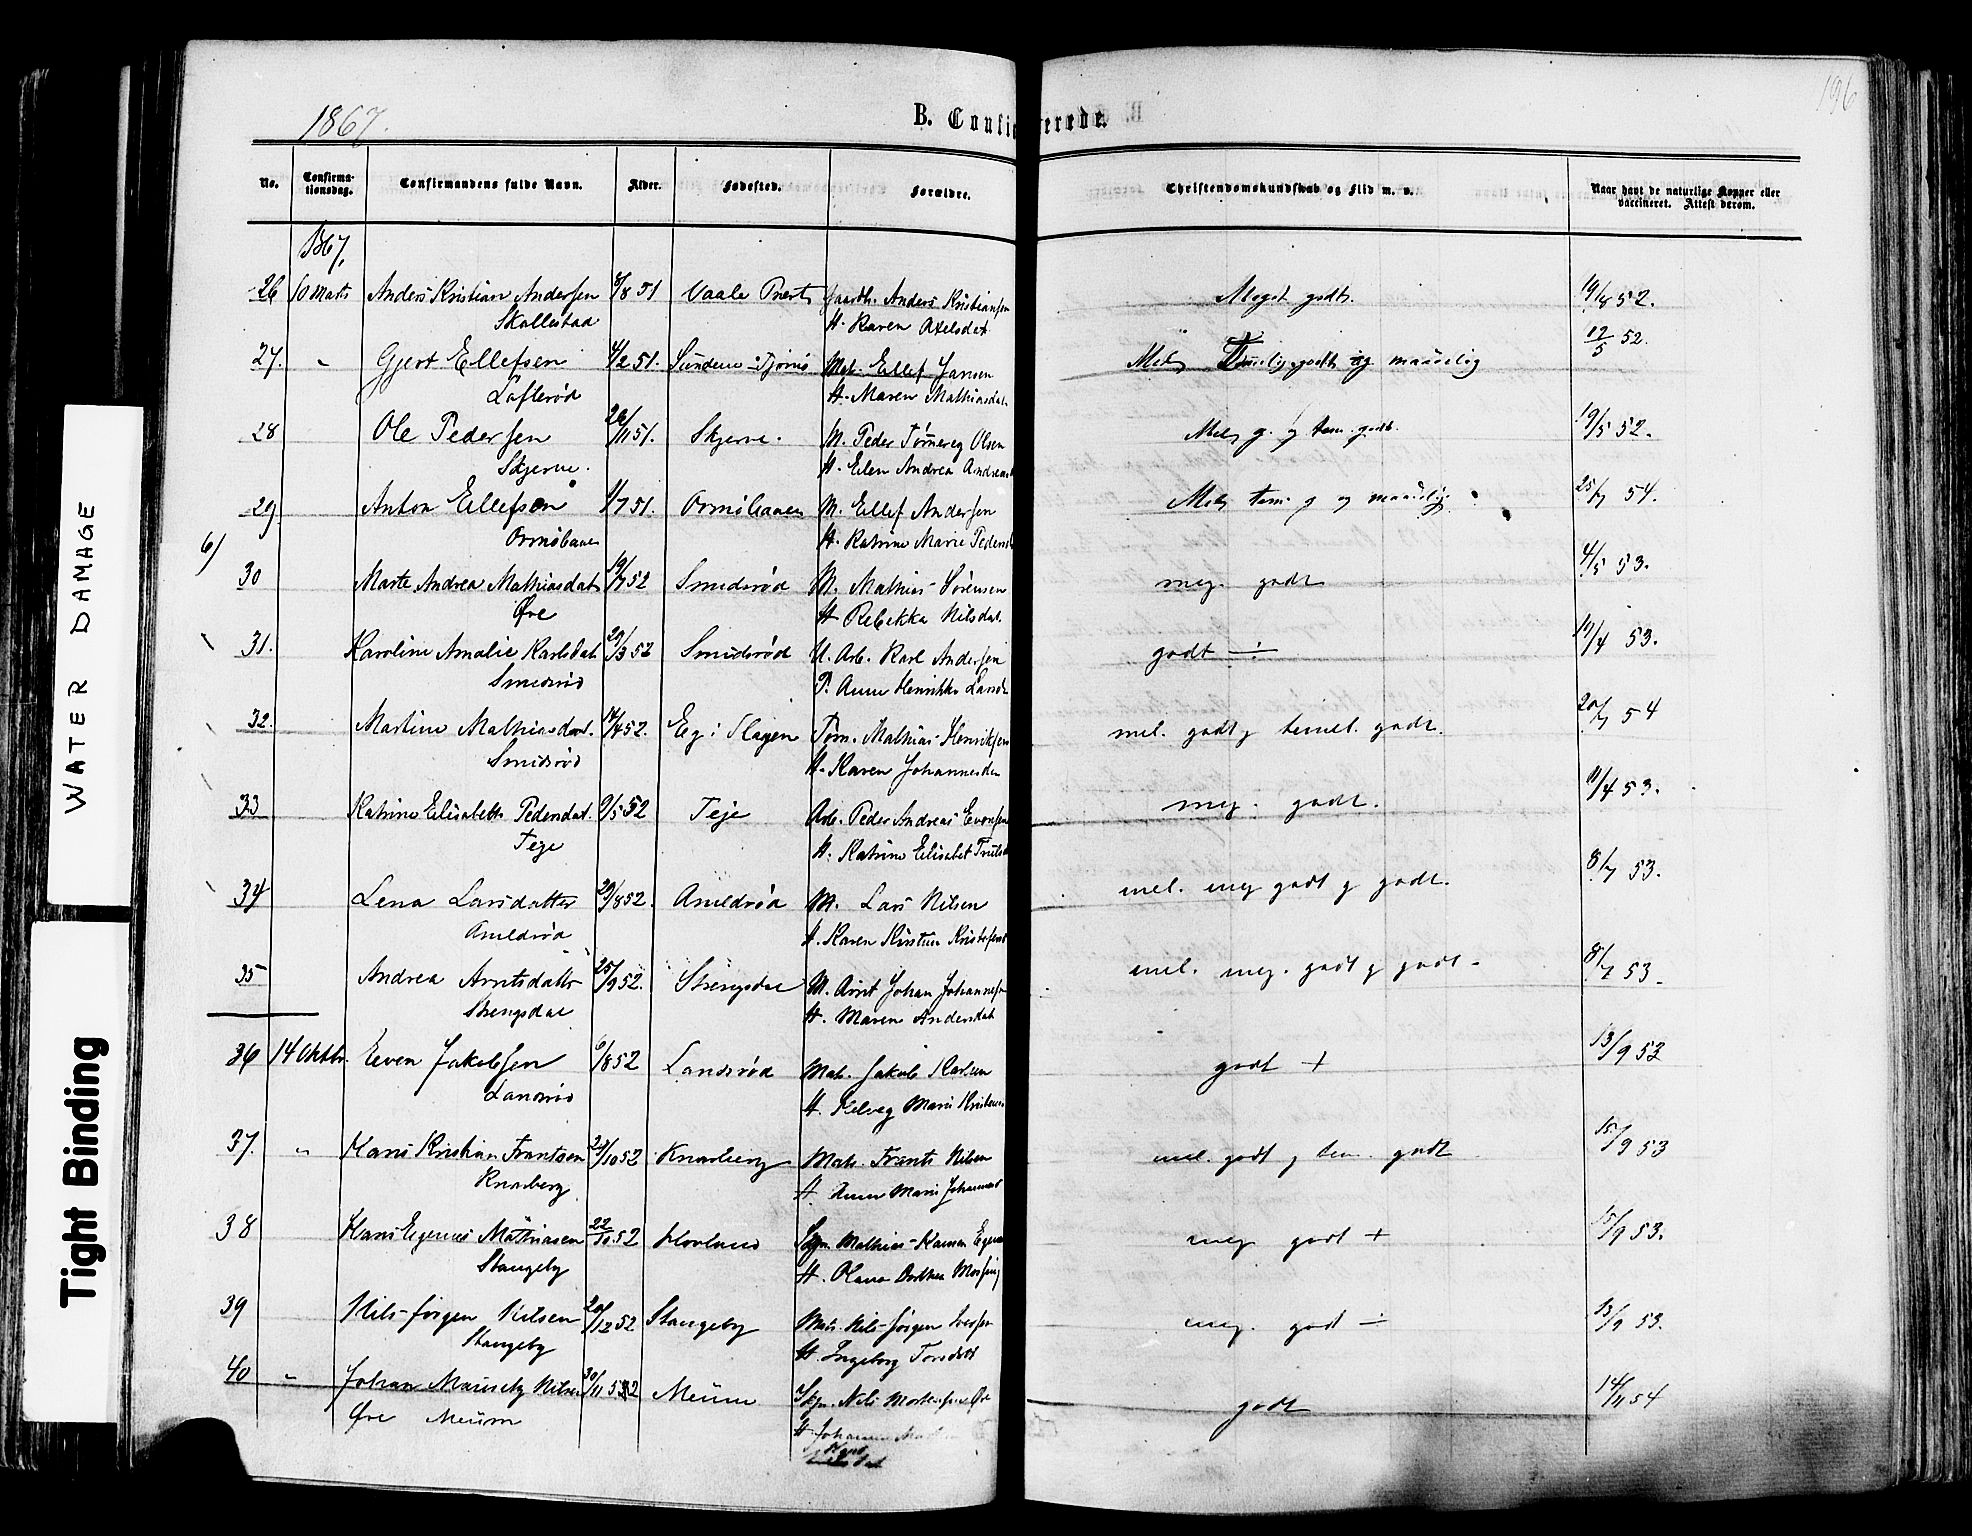 WATER DAMAGE
Tight Binding
1867.
B. Confirmerede.
196
No.
Confirmationsdag.
Confirmandens fulde Navn.
Alder.
Fødested.
Forældre.
Christendomskundskab og Flid m. v.
Naar havt de naturlige Kopper eller vaccineret. Attest derom.
1867.
26 10 Marts Anders Kristian Andersen 8/8 51 Vaale Prest Gaardb. Anders Kristiansen Meget godt. 19/8 52.
Skallestad H. Karen Axelsdat
27. " Gjert Ellefsen 4/2 51. Sundene Tjømø Mat. Ellef Jansen Mel. Temelig godt og maadelig 12/5 52.
Lofterød H. Maren Mathiasdat.
28 Ole Pedersen 26/11 51. Skjerve. M. Peder Olsen Mel. g. og tem. godt. 19/5 52.
Skjerve. H. Elen Andrea
29 Anton Ellefsen 1/7 51. Ormöbauen M. Ellef Andersen Mel. tem. g og maadelig. 25/7 54.
Ormöbauen H. Katrine Marie
6/
30 Marte Andrea Mathiasdat 19/7 52 Smidsrød M. Mathias Sørensen meg. godt 4/5 53.
Øre H. Rebekka Nilsdat.
31. Karoline Amalie Karlsdat 29/3 52 Smidsrød U. Arb. Karl Andersen godt ÷ 17/4 53.
Smidsrød P. Anne Henrikke
32. Martine Mathiasdat. 14/4 52. Eg i Slagen Tøm. Mathias Henriksen mel. godt og temel. godt. 20/7 54
Smidsrød H. Karen Johannesda
33 Katrine Elisabeth Pedersdat. 9/5 52 Teje Arb. Peder Andreas Evensen meg. godt. 11/4 53.
Teje H. Katrine Elisabet
34 Lena Larsdatter 29/8 52. Arildsrød M. Lars Nilsen mel. meg godt og godt. 8/7 53.
Arildsrød H. Karen Kirstine
35 Andrea Arntsdatter 25/9 52. Strengsdal M. Arnt Johan Johannesen mel. meg. godt og godt - 8/7 53.
Strengsdal H. Maren Andersdat
36 14 Oktbr. Even Jakobsen 6/8 52 Landsrød Mat. Jakob Karlsen godt + 13/9 53
Landsrød H. Helveg Marie
37. " Hans Kristian Frantsen 23/10 52 Knarberg Mat. Frants Nilsen mel. godt og tem. godt 15/9 53
Knarberg H. Anne Marie
38 Hans Egenes Mathiasen 22/10 52 Hovland Skpr. Mathias Hansen meg godt + 15/9 53.
Stangeby H.
39 Nils Jørgen Nilsen 20/12 52 Stangeby Mat. Nils Jørgen meg. godt ÷ 13/9 53.
Stangeby H. Ingeborg
40 " Johan Mauritz Nilsen 30/11 52 Meum Skpr. Nils Mortensen Øre godt 14/11 54
Øre Meum H. Johanne